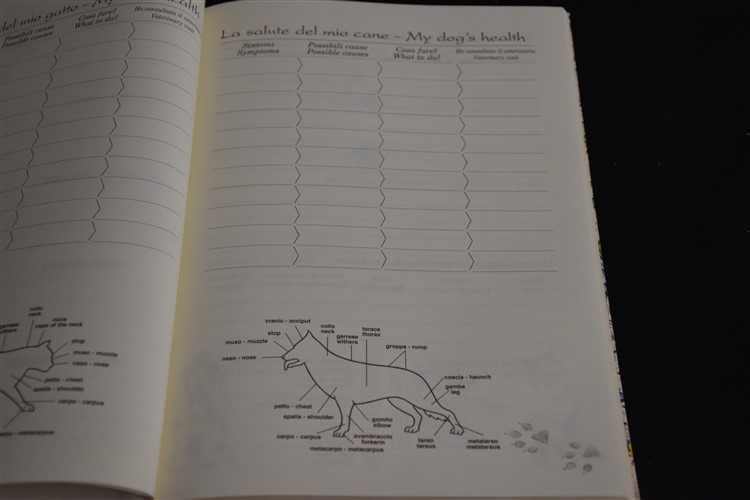 del mio gatto - My
health
Possibili cause
Possible causes
Cosa fare?
What to do?
Ha consultato il veterinario
Veterinary visit
collo
neck
nuca
nape of the neck
garrese
withers
stop
muso - muzzle
naso - nose
petto - chest
spalla - shoulder
carpo - carpus
metacarpus
La salute del mio cane - My dog's health
Sintomi
Symptoms
Possibili cause
Possible causes
Cosa fare?
What to do?
Ha consultato il veterinario
Veterinary visit
cranio - occiput
stop
muso - muzzle
naso - nose
collo
neck
garrese
withers
torace
thorax
groppa - rump
coscia - haunch
gamba
leg
petto - chest
spalla - shoulder
gomito
elbow
carpo - carpus
avambraccio
forearm
metacarpo - metacarpus
tarso
tarsus
metatarso
metatarsus